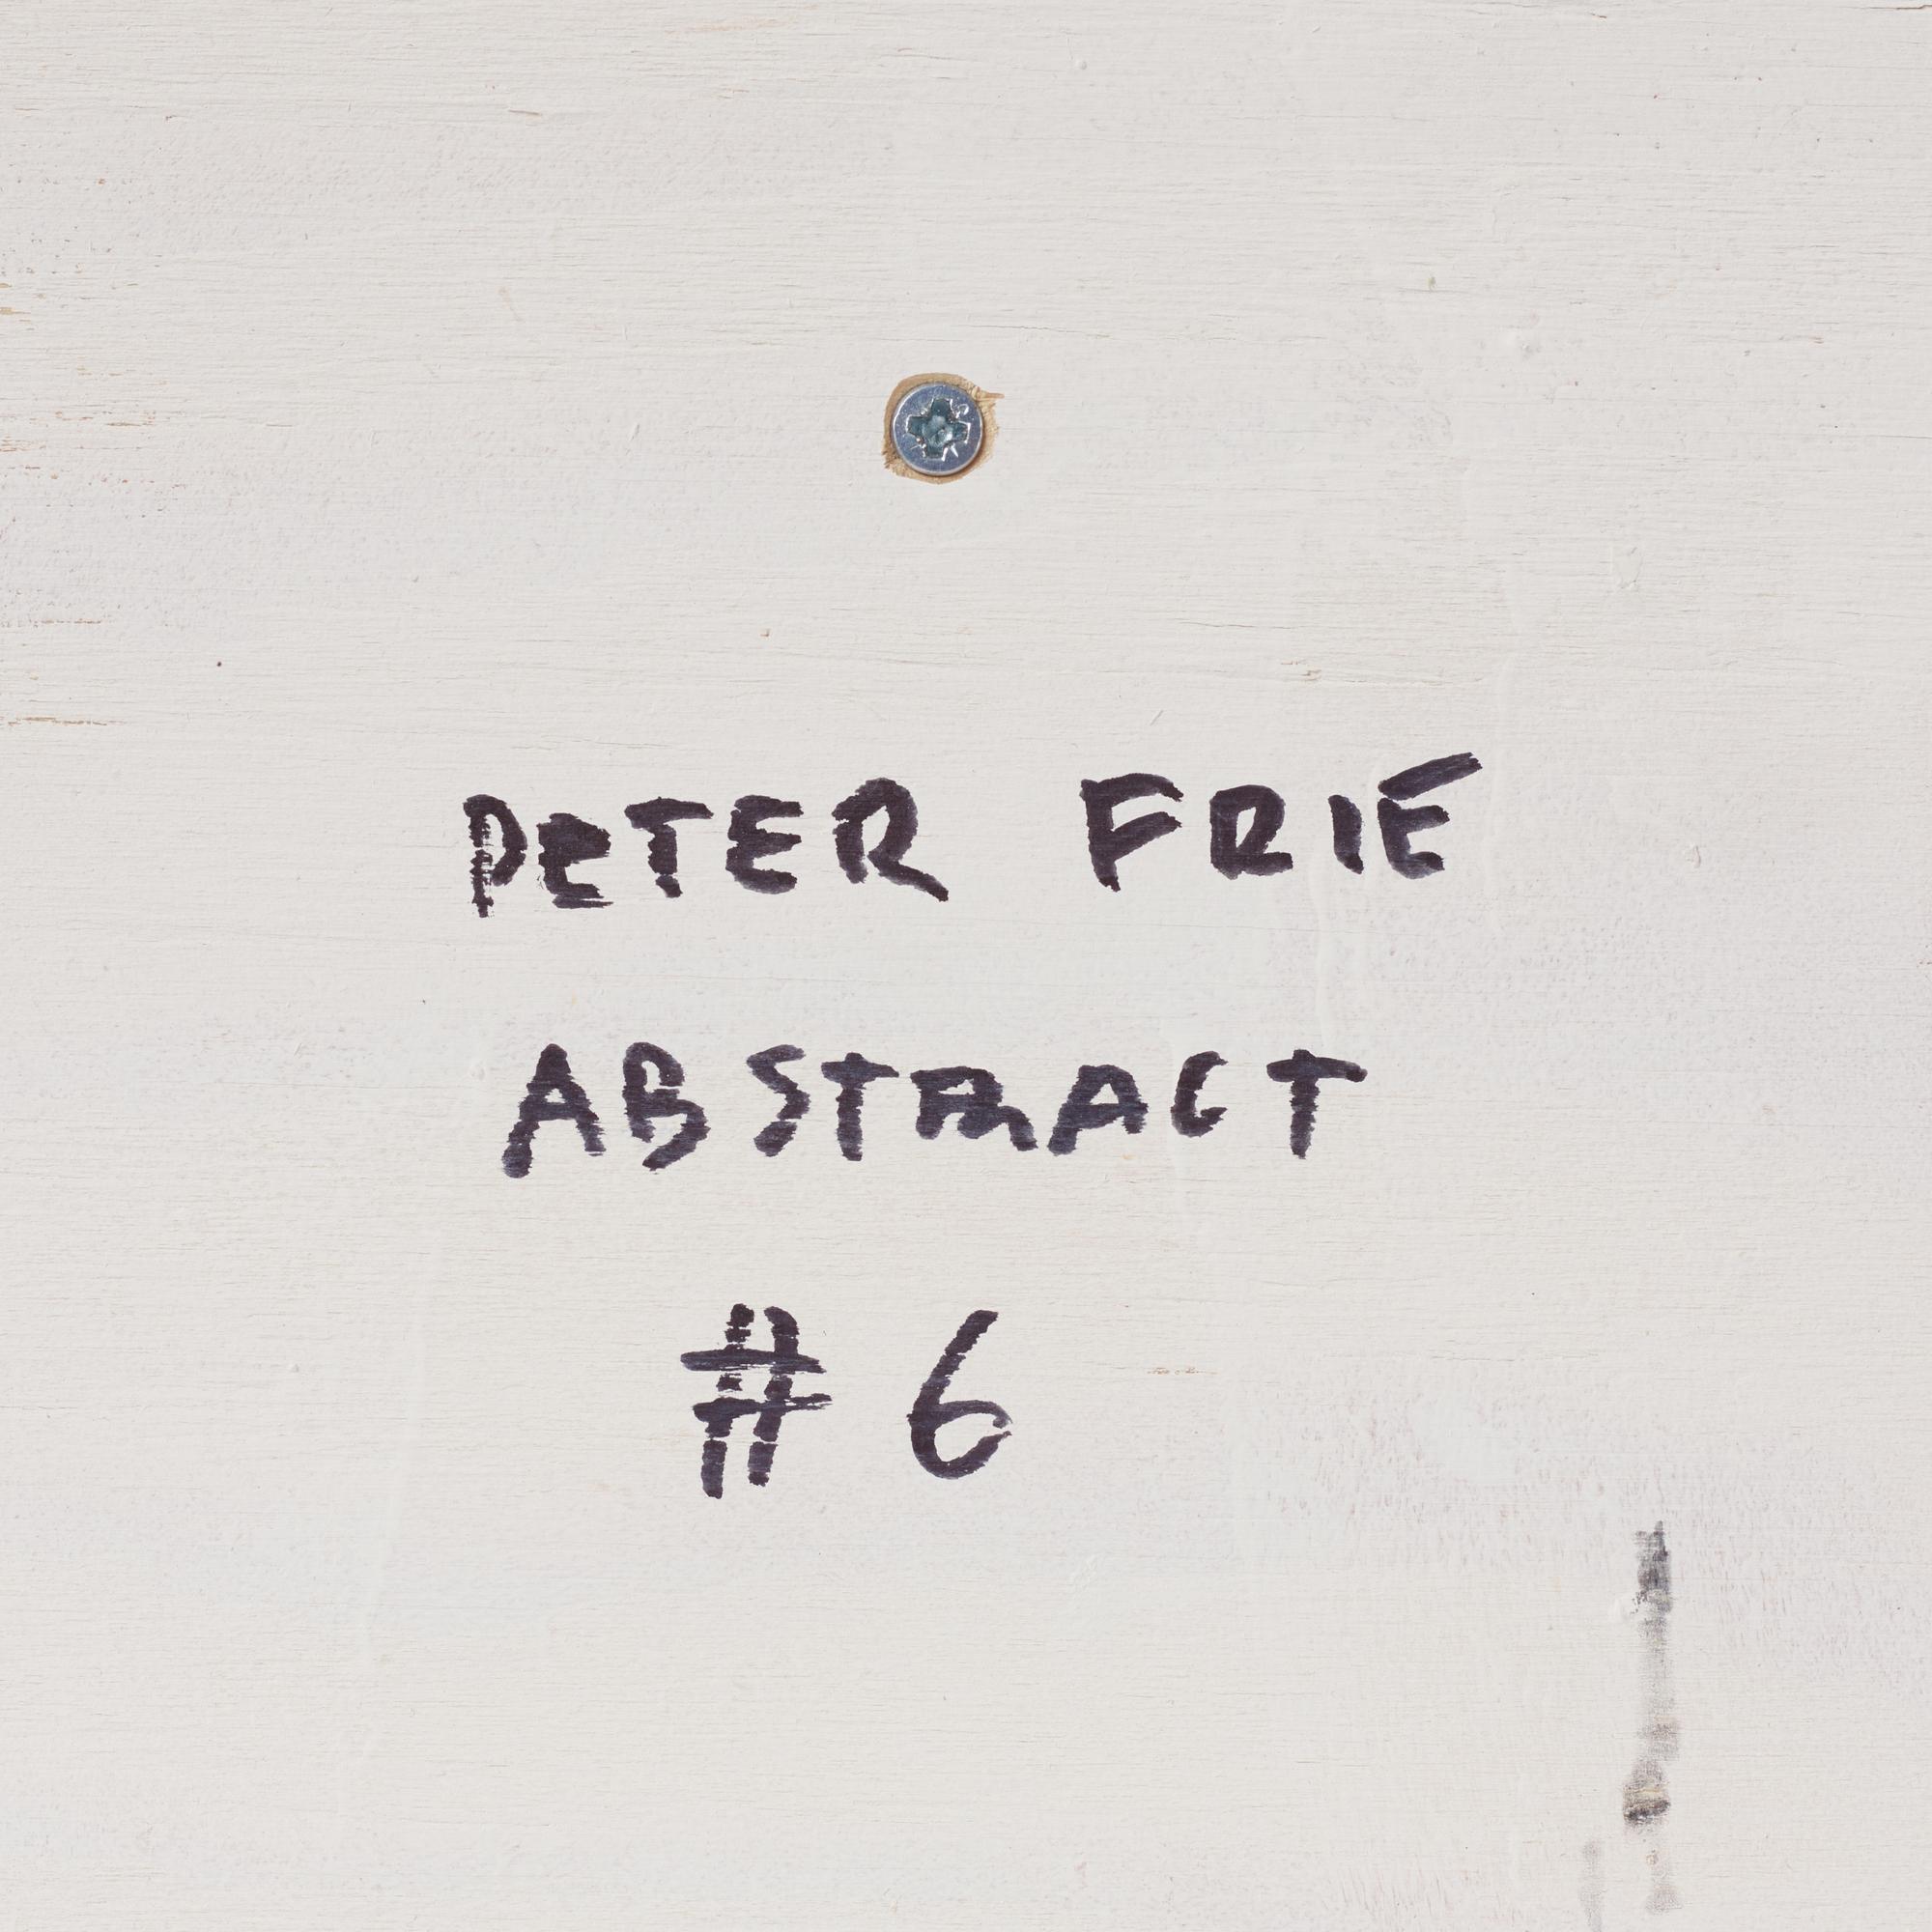 PeTER FRIE
ABSTRACT
# 6